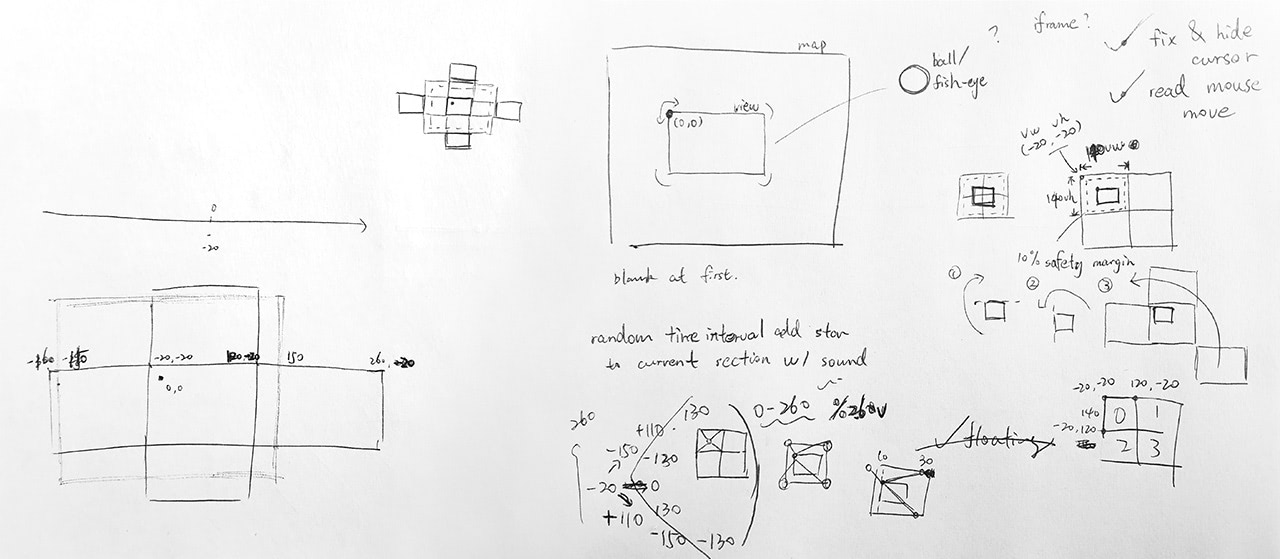 map
view
(0,0)
ball/
fish-eye
?
iframe?
fix & hide
cursor
read mouse
move
vw vh
(-20, -20)
140vh
10% safety margin
①
②
③
0
-20
blank at first.
random time interval add star
to current section w/ sound
-20,-20
150
260
-20
0,0
260
130
+110
-150
-130
-20
0
+110
130
-150
-130
0-260
%260v
10
30
floating
-20,-20
120,-20
140
-20,120
0 1
2 3